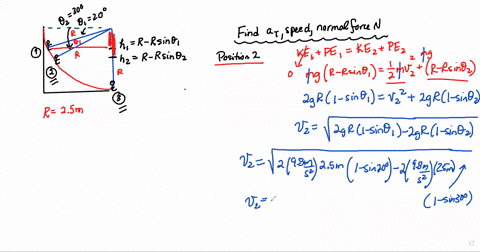 θ₂=30°
θ₁=20°
R
θ₁
R
h₁ = R-Rsinθ₁
h₂ = R-Rsinθ₂
R
①
②
③
R = 2.5m
Find aT, speed, normal force N
Position 2
KE₁ + PE₁ = KE₂ + PE₂
0 mg(R-Rsinθ₁) = 1/2 mv₂² + mg(R-Rsinθ₂)
2gR(1-sinθ₁) = v₂² + 2gR(1-sinθ₂)
v₂ = √2gR(1-sinθ₁)-2gR(1-sinθ₂)
v₂ = √2(9.8m/s²)2.5m(1-sin20°)-2(9.8m/s²)(2.5m)
(1-sin30°)
v₂ =